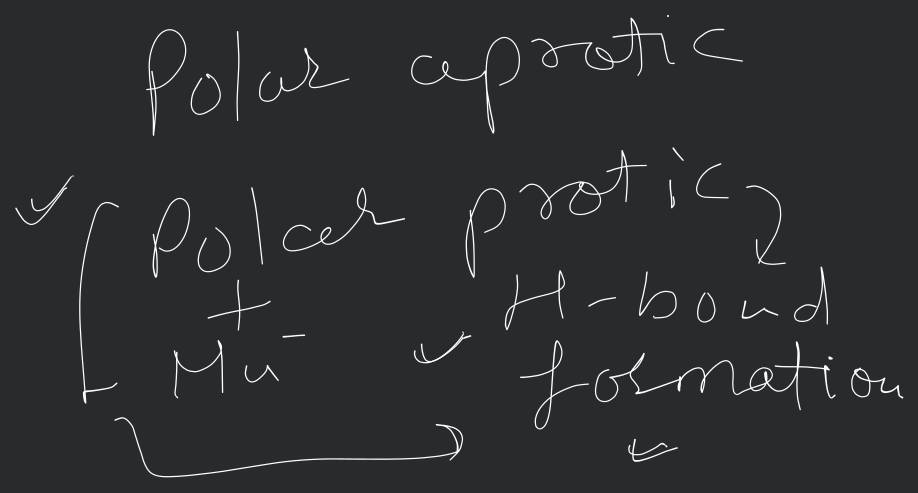 Polar aprotic
Polar protic
+
H-bond
Nu⁻
formation